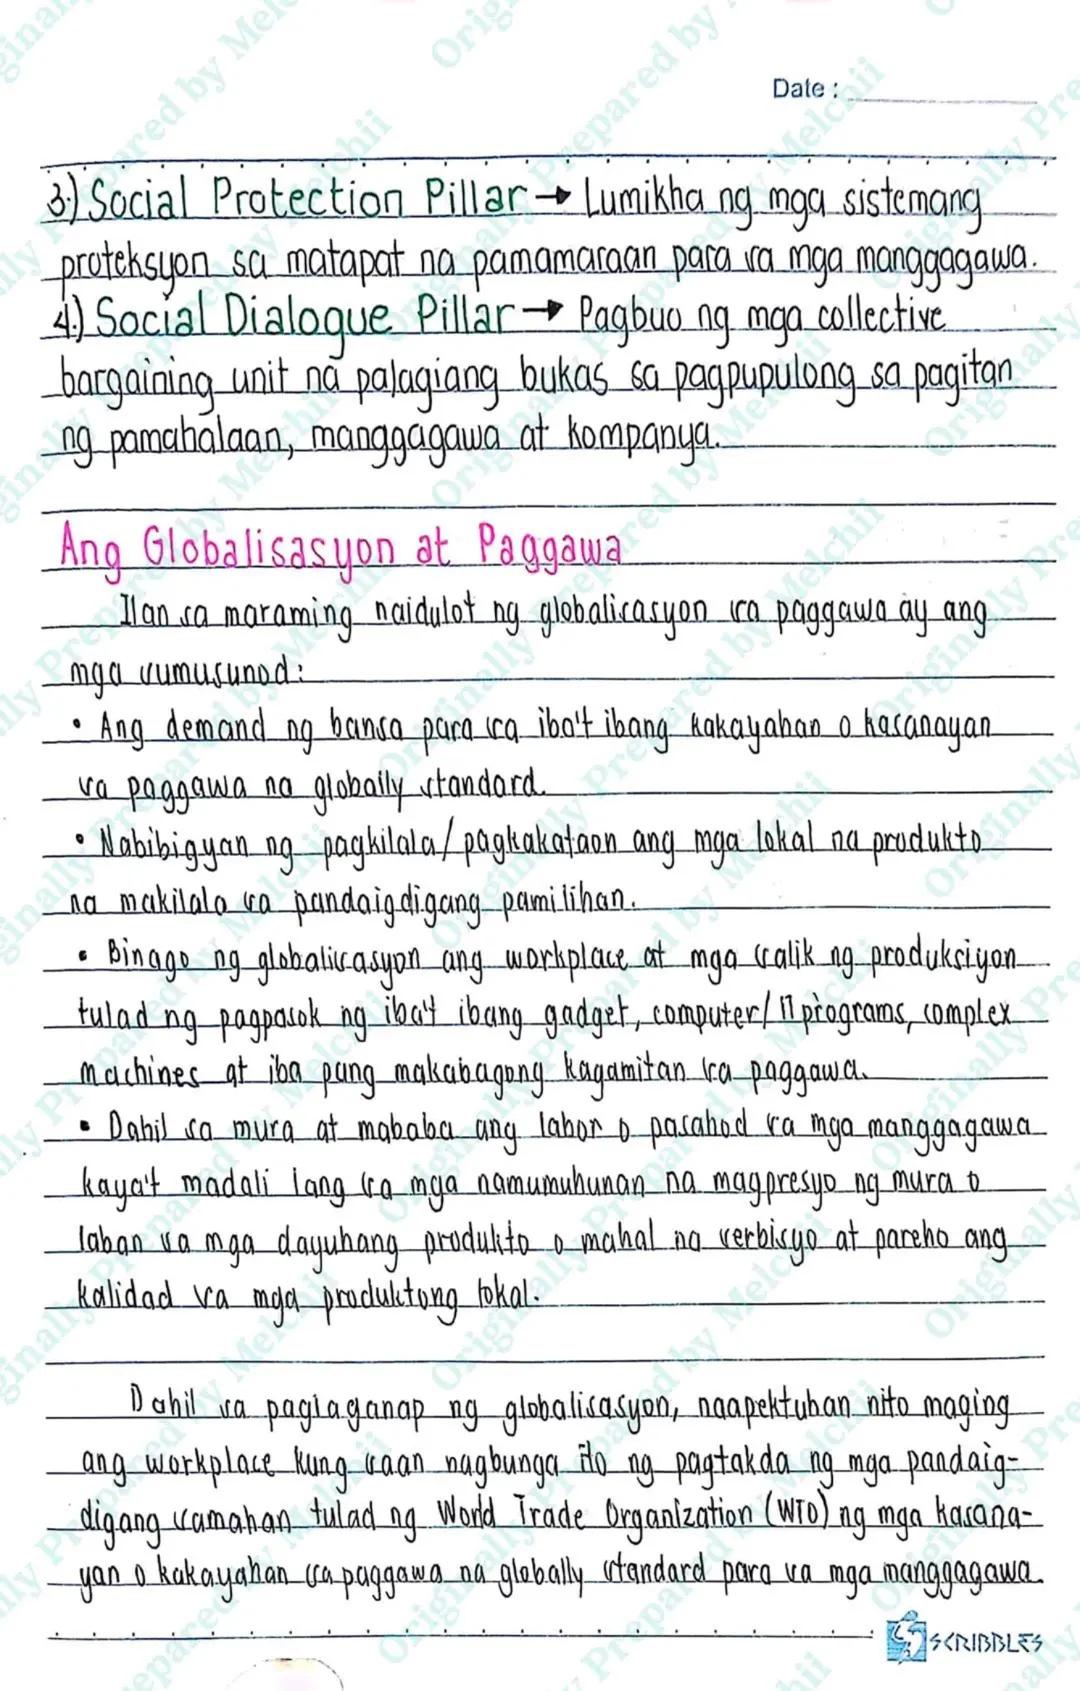 Date :
3.) Social Protection Pillar → Lumikha ng mga sistemang
proteksyon sa matapat na pamamaraan para sa mga manggagawa.
4.) Social Dialogue Pillar → Pagbuo ng mga collective
bargaining unit na palagiang bukas sa pagpupulong sa pagitan
ng pamahalaan, manggagawa at kompanya.
Ang Globalisasyon at Paggawa
Ilan sa maraming naidulot ng globalisasyon sa paggawa ay ang
mga sumusunod:
• Ang demand ng bansa para sa iba't ibang kakayahan o kasanayan
sa paggawa na globally standard.
• Nabibigyan ng pagkilala/pagkakataon ang mga lokal na produkto
na makilala sa pandaigdigang pamilihan.
• Binago ng globalisasyon ang workplace at mga salik ng produksiyon
tulad ng pagpasok ng iba't ibang gadget, computer/IT programs, complex
machines at iba pang makabagong kagamitan sa paggawa.
• Dahil sa mura at mababa ang labor o pasahod sa mga manggagawa
kaya't madali lang sa mga namumuhunan na magpresyo ng mura o
laban sa mga dayuhang produkto o mahal na serbisyo at pareho ang
kalidad sa mga produktong lokal.
Dahil sa pagiaganap ng globalisasyon, naapektuhan nito maging
ang workplace kung saan nagbunga ito ng pagtakda ng mga pandaig-
digang samahan tulad ng World Trade Organization (WTO) ng mga kasana-
yan o kakayahan sa paggawa na globally standard para sa mga manggagawa.
SCRIBBLES
Originally Prepared by Melchii